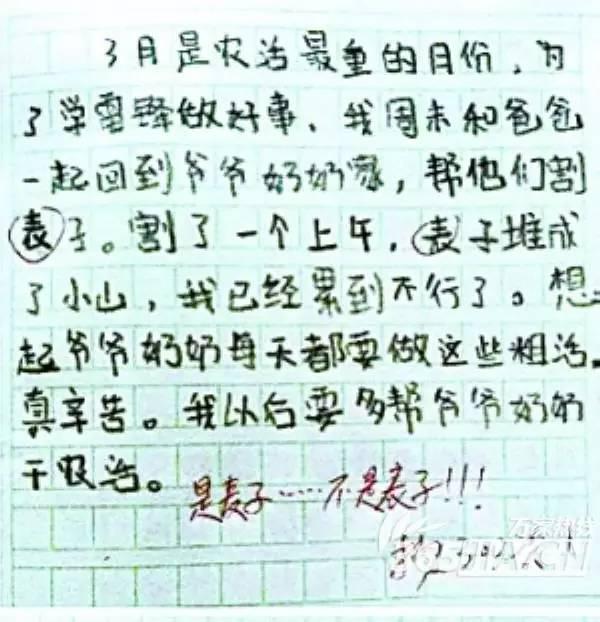 3月是农活最重的月份，为
了学雷锋做好事，我周末和爸爸
一起回到爷爷奶奶家，帮他们割
表子。割了一个上午，表子堆成
了小山，我已经累到不行了。想
起爷爷奶奶每天都要做这些粗活，
真辛苦。我以后要多帮爷爷奶奶
干农活。
是麦子……不是表子!!!
万家热线
365JIA.CN